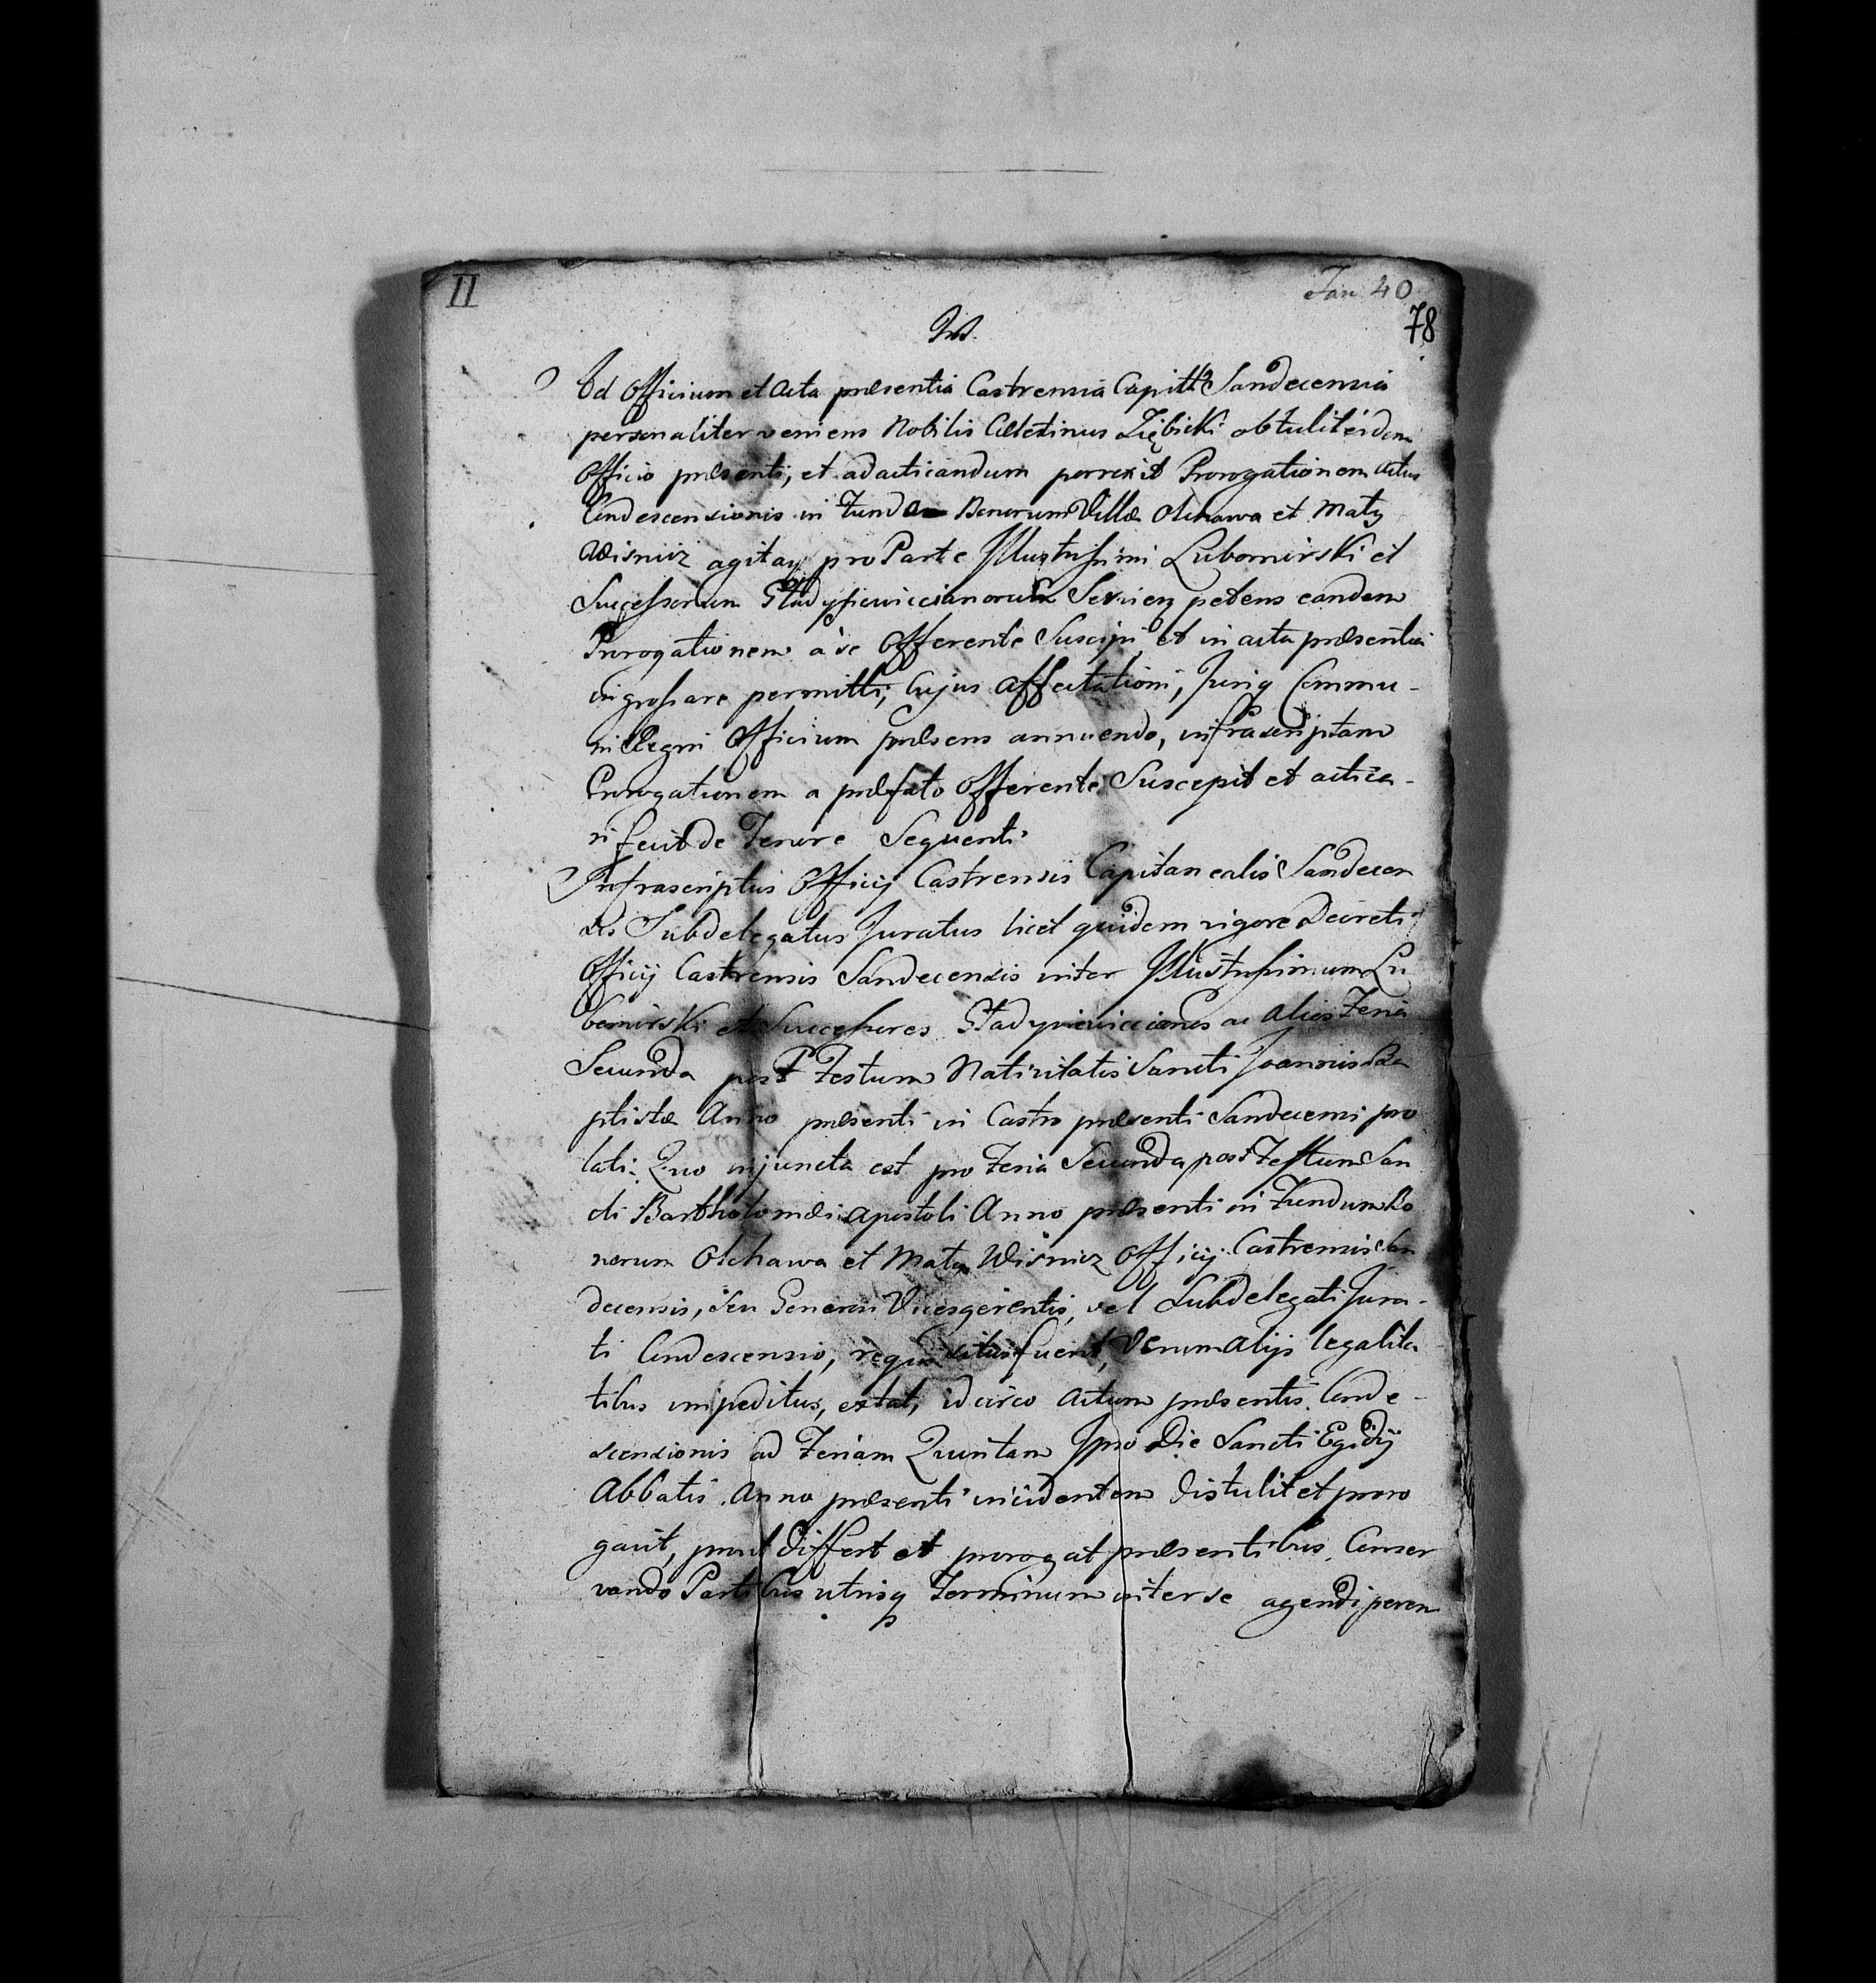 II
Fasc 40
78
Ad Officium et Acta præsentia Castrensia Capitt Sandecensia
personaliter veniens Nobilis Cælestinus Ziębicki obtulit eidem
Officio præsenti, et ad acticandum porrexit Prorogationem Actus
Condescensionis in Fundo Bonorum Villæ Olchawa et Mały
Wisnicz agitaÿ pro Parte Illustrissimi Lubomirski et
Successorum Gładysiewiccianorum Servieÿ petens eandem
Prorogationem à se Offerente Suscipi, et in acta præsentia
ingrossare permitti; Cujus Affectationi, Juriq Commu-
ni Regni Officium præsens annuendo, infrascriptam
Prorogationem a præfato Offerente Suscepit et actica-
ri fecit de Tenore Sequenti
Infrascriptus Officij Castrensis Capitanealis Sandecen
sis Subdelegatus Juratus licet quidem vigore Decreti
Officij Castrensis Sandecensis inter Illustrissimum Lu
bomirski et Successores Gładysiewiccianos ac alios Feria
Secunda post Festum Nativitatis Sancti Joannis Ba
ptistæ Anno præsenti in Castro præsenti Sandecensi pro
lati. Quo injuncta est pro Feria Secunda post Festum San
cti Bartholomæi Apostoli Anno præsenti in Fundum Bo
norum Olchawa et Mały Wiśnicz Officij Castrensis San
decensis, seu Generosi Vicesgerentis, vel Subdelegati Jura-
ti Condescensio, requisitus fuerit, Verum alijs legalita
tibus impeditus, extat, idcirco Actum præsentis Conde-
scensionis ad Feriam Quintam Ipso Die Sancti Egidij
Abbatis Anno præsenti incidentem distulit et proro
gavit, prout differt et prorogat præsentibus. Conser
vando Partibus utrisq Terminum inter se agendi peren